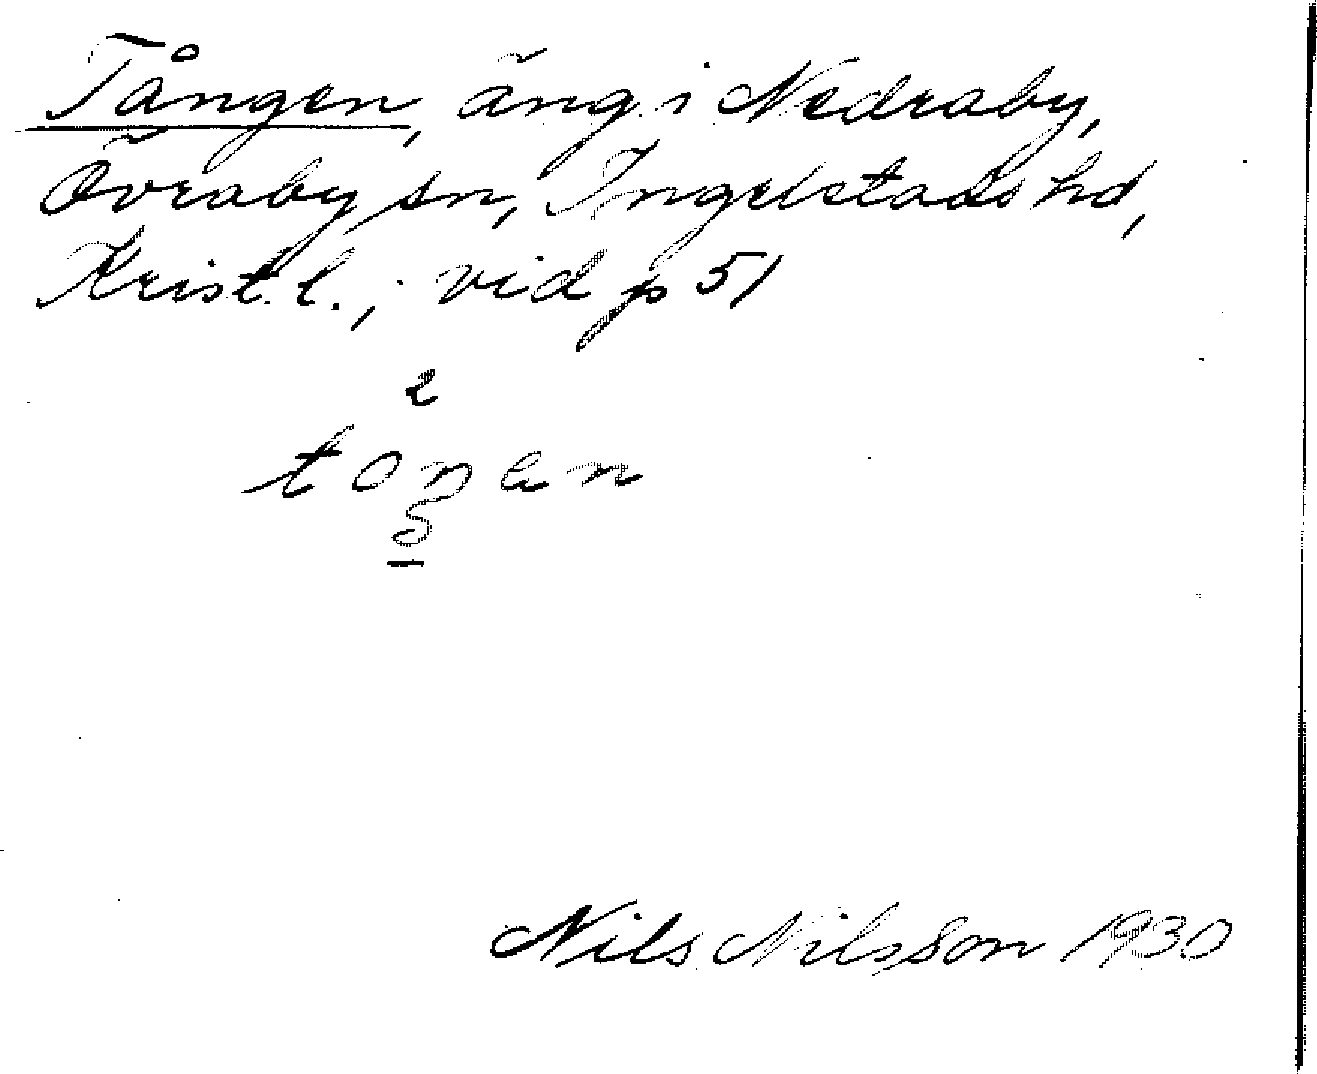 Tången, äng i Nedraby,
Övraby sn, Ingelstads hd,
Krist. l.; vid p 51
2
toŋen
Nils Nilsson 1930